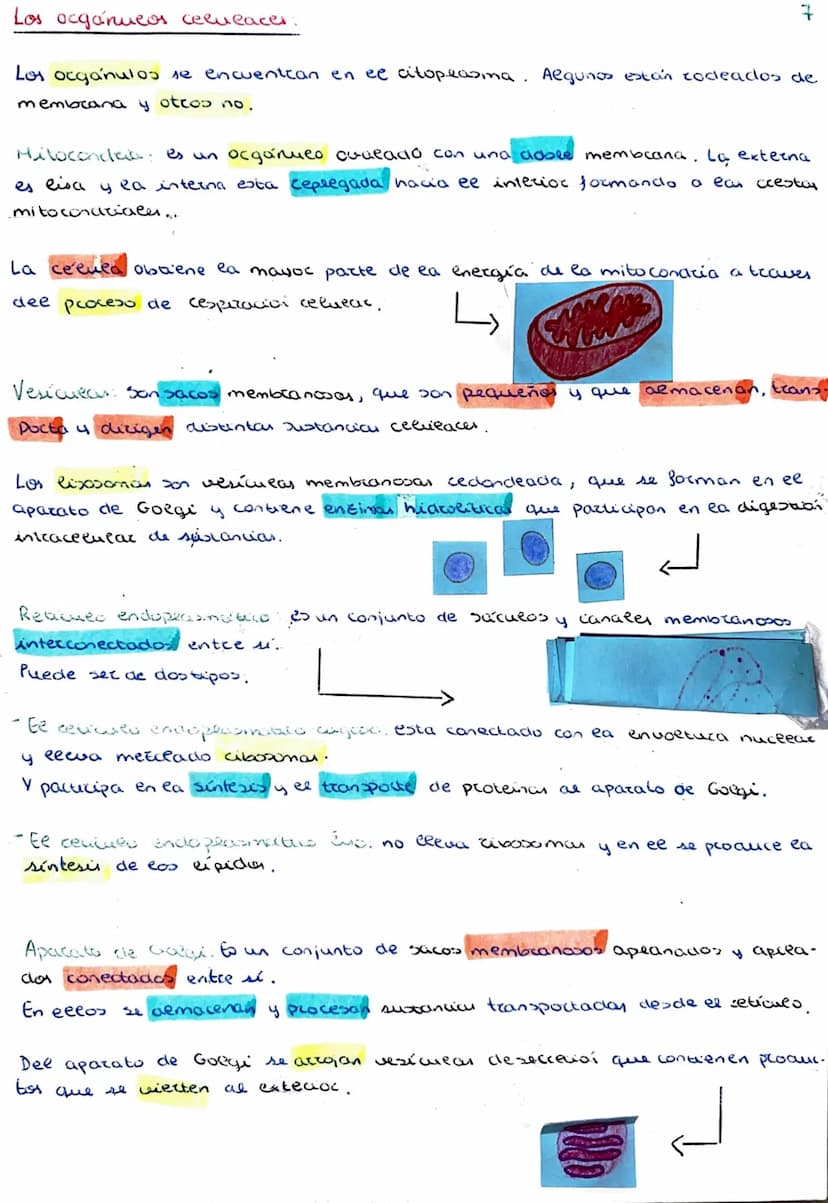 Los orgánulos celulares:
7
Los orgánulos se encuentran en el citoplasma. Algunos están rodeados de
membrana y otros no.
Mitocondria: es un orgánulo ovalado con una doble membrana. La externa
es lisa y la interna esta replegada hacia el interior formando a las crestas
mitocondriales..
La célula obtiene la mayor parte de la energía de la mitocondria a traves
del proceso de respiración celular.
Vesículas: Son sacos membranosos, que son pequeños y que almacenan, trans-
porta y dirigen distintas sustancias celulares.
Los lisosomas son vesículas membranosas redondeada, que se forman en el
aparato de Golgi y contiene enzimas hidrolíticas que participan en la digestión
intracelular de sustancias.
Retículo endoplasmático: es un conjunto de sáculos y canales membranosos
interconectados entre sí.
Puede ser de dos tipos.
- El retículo endoplasmático rugoso. esta conectado con la envoltura nuclear
y lleva mezclado ribosomas.
Y participa en la síntesis y el transporte de proteínas al aparato de Golgi.
- El retículo endoplasmático liso. no lleva ribosomas y en el se produce la
síntesis de los lípidos.
Aparato de Golgi. Es un conjunto de sacos membranosos aplanados y apila-
dos conectados entre sí.
En ellos se almacenan y procesan sustancias transportadas desde el retículo.
Del aparato de Golgi se arrojan vesículas de secreción que contienen produc-
tos que se vierten al exterior.